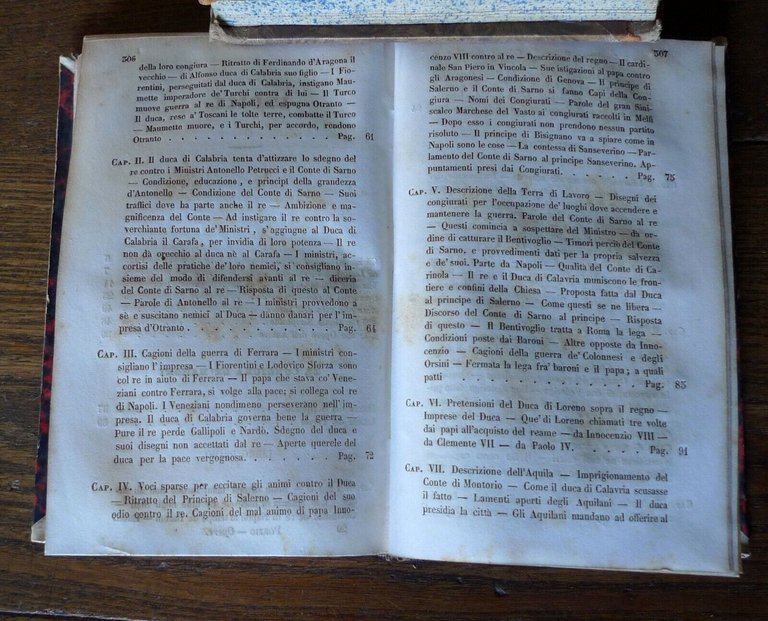 506
della loro congiura — Ritratto di Ferdinando d'Aragona il
vecchio — di Alfonso duca di Calabria suo figlio — I Fio-
rentini, perseguitati dal duca di Calabria, instigano Mau-
mette imperadore de' Turchi contro di lui — Il Turco
muove guerra al re di Napoli, ed espugna Otranto —
Il duca, reso a' Toscani le tolte terre, combatte il Turco
— Maumette muore, e i Turchi, per accordo, rendono
Otranto . . . . . . . . . . . . . Pag. 61
CAP. II. Il duca di Calabria tenta d'attizzare lo sdegno del
re contro i Ministri Antonello Petrucci e il Conte di Sarno
— Condizione, educazione, e principî della grandezza
d'Antonello — Condizione del Conte di Sarno — Suoi
traffici dove ha parte anche il re — Ambizione e ma-
gnificenza del Conte — Ad instigare il re contro la so-
verchiante fortuna de' Ministri, s'aggiugne al Duca di
Calabria il Carafa, per invidia di loro potenza — Il re
non dà orecchio al duca nè al Carafa — I ministri, ac-
cortisi delle pratiche de' loro nemici, si consigliano in-
sieme del modo di difendersi avanti al re — diceria
del Conte di Sarno al re — Risposta di questo al Conte
— Parole di Antonello al re — I ministri provvedono a
sè e suscitano nemici al Duca — danno danari per l'im-
presa d'Otranto . . . . . . . . . . Pag. 64
CAP. III. Cagioni della guerra di Ferrara — I ministri con-
sigliano l'impresa — I Fiorentini e Lodovico Sforza sono
col re in aiuto di Ferrara — Il papa che stava co' Vene-
ziani contro Ferrara, si volge alla pace; si collega col re
di Napoli. I Veneziani nondimeno perseverano nell'im-
presa. Il duca di Calabria governa bene la guerra —
Pure il re perde Gallipoli e Nardò. Sdegno del duca e
suoi disegni non accettati dal re — Aperte querele del
duca per la pace vergognosa. . . . . . . Pag. 72
CAP. IV. Voci sparse per eccitare gli animi contro il Duca
— Ritratto del Principe di Salerno — Cagioni del suo
odio contro il re. Cagioni del mal animo di papa Inno-
507
cenzo VIII contro al re — Descrizione del regno — Il cardi-
nale San Piero in Vincola — Sue istigazioni al papa contro
gli Aragonesi — Condizione di Genova — Il principe di
Salerno e il Conte di Sarno si fanno Capi della Con-
giura — Nomi dei Congiurati — Parole del gran Sini-
scalco Marchese del Vasto ai congiurati raccolti in Melfi
— Dopo esso i congiurati non prendono nessun partito
risoluto — Il principe di Bisignano va a spiare come in
Napoli sono le cose — La contessa di Sanseverino — Par-
lamento del Conte di Sarno al principe Sanseverino. Ap-
puntamenti presi dai Congiurati. . . . . . Pag. 75
CAP. V. Descrizione della Terra di Lavoro — Disegni dei
congiurati per l'occupazione de' luoghi dove accendere e
mantenere la guerra. Parole del Conte di Sarno al re
— Questi comincia a sospettare del Ministro — da or-
dine di catturare il Bentivoglio — Timori perciò del Conte
di Sarno, e provvedimenti dati per la propria salvezza
e de' suoi. Parte da Napoli — Qualità del Conte di Ca-
rinola — Il re e il Duca di Calabria muniscono le fron-
tiere e confini della Chiesa — Proposta fatta dal Duca
al principe di Salerno — Come questi se ne libera —
Discorso del Conte di Sarno al principe — Risposta
di questo — Il Bentivoglio tratta a Roma la lega —
Condizioni poste dai Baroni — Altre opposte da Inno-
cenzio — Cagioni della guerra de' Colonnesi e degli
Orsini — Fermata la lega fra' baroni e il papa; a quali
patti . . . . . . . . . . . . . Pag. 85
CAP. VI. Pretensioni del Duca di Loreno sopra il regno —
Imprese del Duca — Que' di Loreno chiamati tre volte
dai papi all'acquisto del reame — da Innocenzio VIII —
da Clemente VII — da Paolo IV. . . . . . Pag. 91
CAP. VII. Descrizione dell'Aquila — Imprigionamento del
Conte di Montorio — Come il duca di Calavria scusasse
il fatto — Lamenti aperti degli Aquilani — Il duca
presidia la città — Gli Aquilani mandano ad offerire al